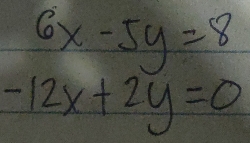 6x - 5y = 8
-12x + 2y = 0